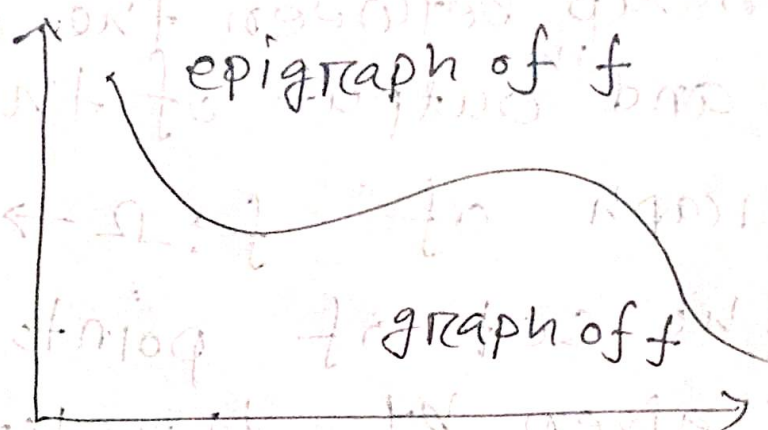 epigraph of f
graph of f